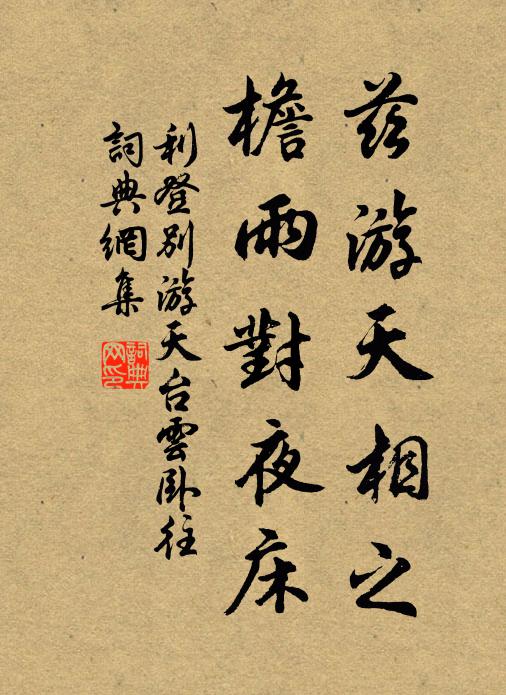 茲游天相之
檐雨對夜床
利登別游天台雲臥往
詞典網集
詞典
网印